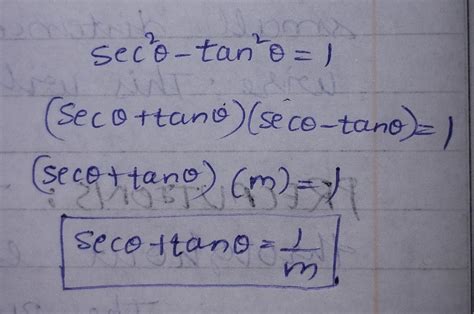 sec²θ - tan²θ = 1
(secθ + tanθ)(secθ - tanθ) = 1
(secθ + tanθ) (m) = 1
secθ + tanθ = 1/m